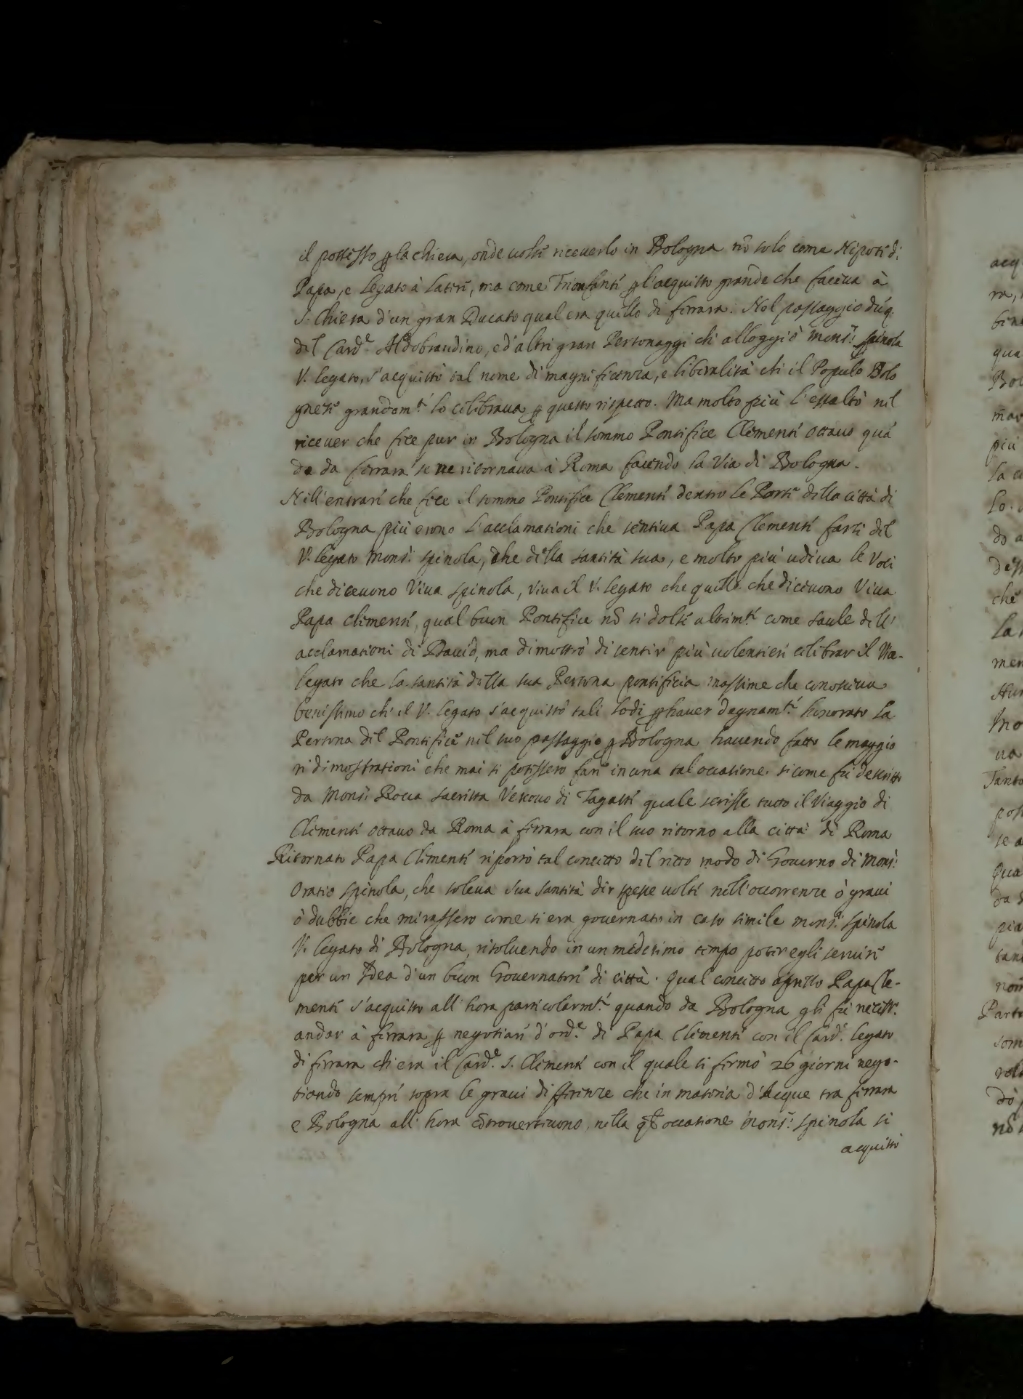 il possesso p la chiesa, onde uolse riceuerlo in Bologna nõ solo come Nipote di
Papa, e legato à latere, ma come Trionfante p l'acquisto grande che faceua à
S. Chiesa d'un gran Ducato qual era quello di ferrara. Nel passaggio dũq
del Card.e Aldobrandino, e d'altri gran Personaggi ch' alloggiò Mons.r Spinola
V. legato, s'acquistò tal nome di magnificenza, e liberalità che il Populo Bolo
gnese grandem.te lo celebraua p questo rispetto. Ma molto più l'essaltò nel
riceuer che fece pur in Bologna il sommo Pontifice Clemente Ottauo quã
do da ferrara se ne ritornaua à Roma facendo la Via di Bologna.
Nell'entrare che fece il sommo Pontifice Clemente dentro le Porte della città di
Bologna più erono l'acclamationi che sentiua Papa Clemente farsi del
V. legato Mons.r Spinola, che della santità sua, e molto più udiua le Voci
che diceuono Viua Spinola, viua il V. legato che quelle che diceuono Viua
Papa Clemente, qual buon Pontifice nõ si dolse altrim.te come Saule dell'
acclamationi di Dauid, ma dimostrò di sentir più uolentieri celebrar il Vice
legato che la santità della sua Persona pontificia massime che conosceua
benissimo che il V. legato s'acquistò tali lodi p hauer degnam.te honorato la
Persona del Pontifice nel suo passaggio p Bologna hauendo fatto le maggio
ri dimostrationi che mai si potessero fare in una tal occatione si come fù descritto
da Mons.r Rocca sacrista Vescouo di Tagaste quale scrisse tutto il Viaggio di
Clemente ottauo da Roma à ferrara con il suo ritorno alla città di Roma
Ritornato Papa Clemente riportò tal concetto del retto modo di Gouerno di Mons.r
Oratio Spinola, che soleua Sua santità dir spesse uolte nell'occorrenze ò graui
ò dubbie che mirassero come si era gouernato in caso simile mons.r Spinola
V. legato di Bologna, risoluendo in un medesimo tempo poter egli seruire
per un Idea d'un buon Gouernatore di città. Qual concetto apresso Papa Cle-
mente s'acquisto all'hora particolarm.te quando da Bologna gli fù necess.o
andar à ferrara p negotiare d'ord.e di Papa Clemente con il Card.e legato
di ferrara ch'era il Card.e S. Clemente con il quale si firmò 26 giorni nego-
tiando sempre sopra le graui differenze che in materia d'Acque tra ferrara
e Bologna all'hora cõtrouertiuono, nella q̃l occatione mons.r Spinola si
acquistò